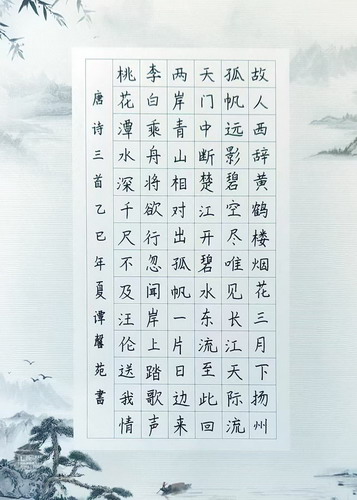 故人西辞黄鹤楼烟花三月下扬州
孤帆远影碧空尽唯见长江天际流
天门中断楚江开碧水东流至此回
两岸青山相对出孤帆一片日边来
李白乘舟将欲行忽闻岸上踏歌声
桃花潭水深千尺不及汪伦送我情
唐诗三首乙巳年夏谭馨苑書